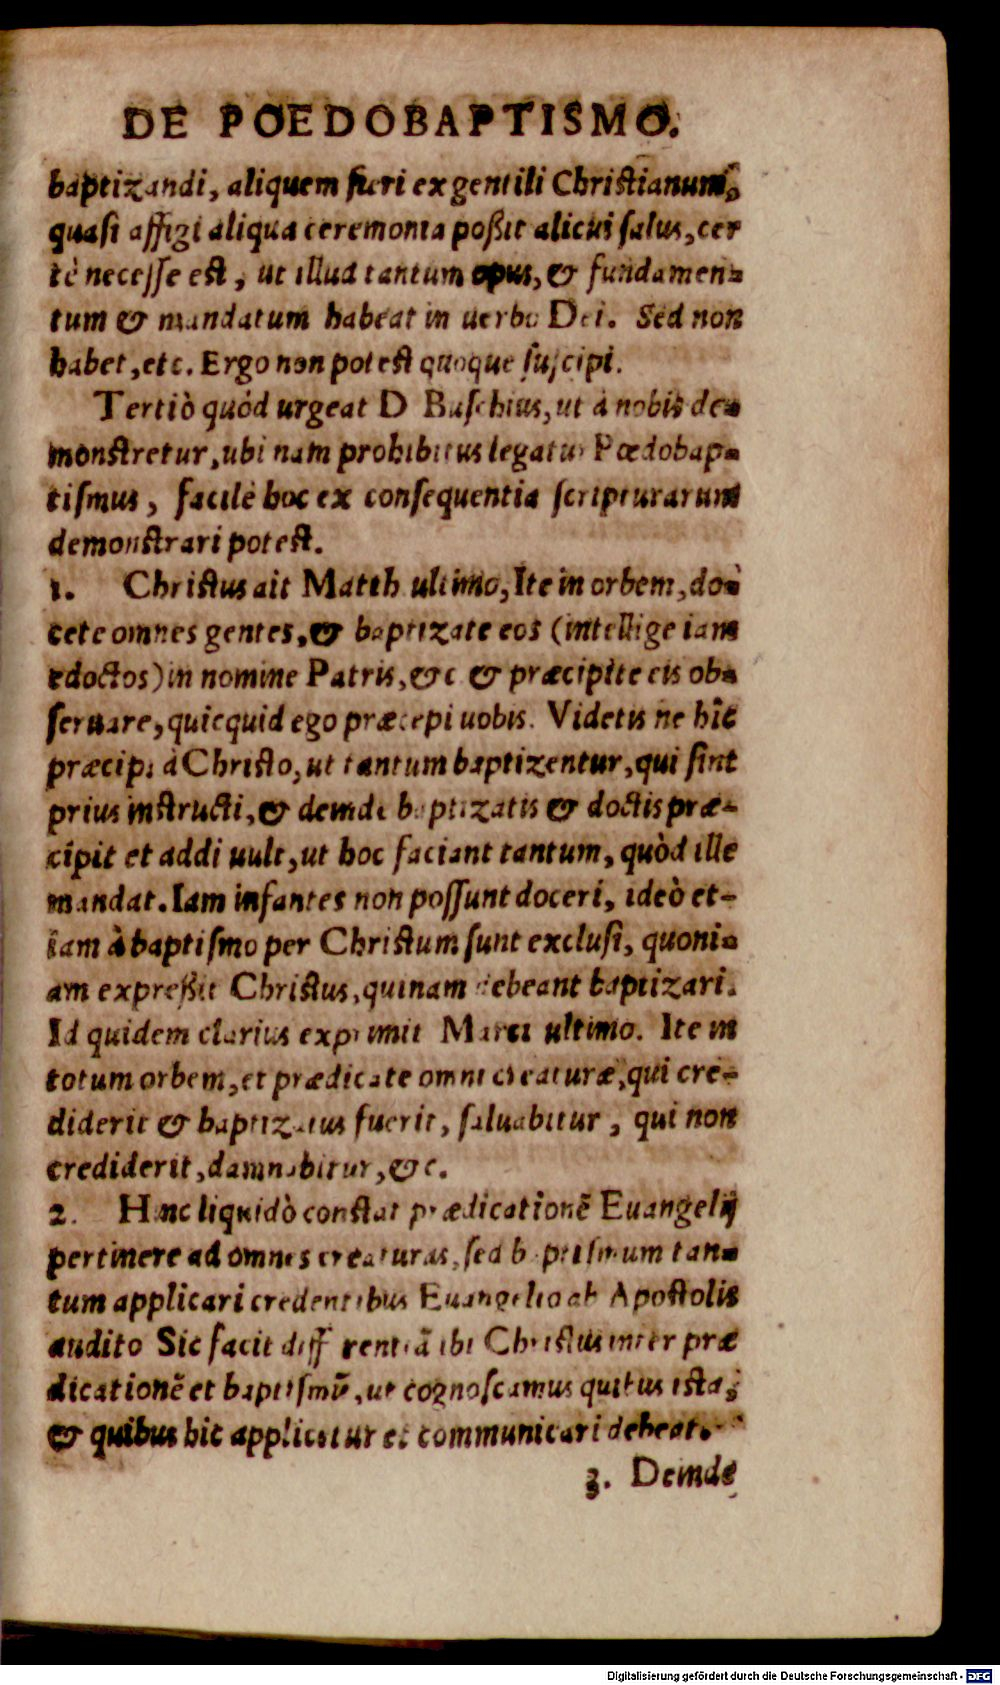 DE POEDOBAPTISMO.
baptizandi, aliquem fieri ex gentili Christianum,
quasi affigi aliqua ceremonia poßit alicui salus, cer
tè necesse est, ut illud tantum opus, & fundamen-
tum & mandatum habeat in uerbo Dei. Sed non
habet, etc. Ergo non potest quoque suscipi.
Tertiò quòd urgeat D Buschius, ut à nobis de-
monstretur, ubi nam prohibitus legatur Pœdobap-
tismus, facilè hoc ex consequentia scripturarum
demonstrari potest.
1. Christus ait Matth ultimo, Ite in orbem, do-
cete omnes gentes, & baptizate eos (intellige iam
edoctos) in nomine Patris, &c & præcipite eis ob-
seruare, quicquid ego præcepi uobis. Videtis ne hîc
præcipi à Christo, ut tantum baptizentur, qui sint
prius instructi, & deinde baptizatis & doctis præ-
cipit et addi uult, ut hoc faciant tantum, quòd ille
mandat. Iam infantes non possunt doceri, ideò et-
iam à baptismo per Christum sunt exclusi, quoni-
am expreßit Christus, quinam debeant baptizari.
Id quidem clarius exprimit Marci ultimo. Ite in
totum orbem, et prædicate omni creaturæ, qui cre-
diderit & baptizatus fuerit, saluabitur, qui non
crediderit, damnabitur, &c.
2. Hinc liquidò constat prædicationẽ Euangelij
pertinere ad omnes creaturas, sed baptismum tan-
tum applicari credentibus Euangelio ab Apostolis
audito Sic facit differentiã ibi Christus inter præ
dicationẽ et baptismũ, ut cognoscamus quibus ista,
& quibus hic applicetur et communicari debeat.
3. Deinde
Digitalisierung gefördert durch die Deutsche Forschungsgemeinschaft - DFG